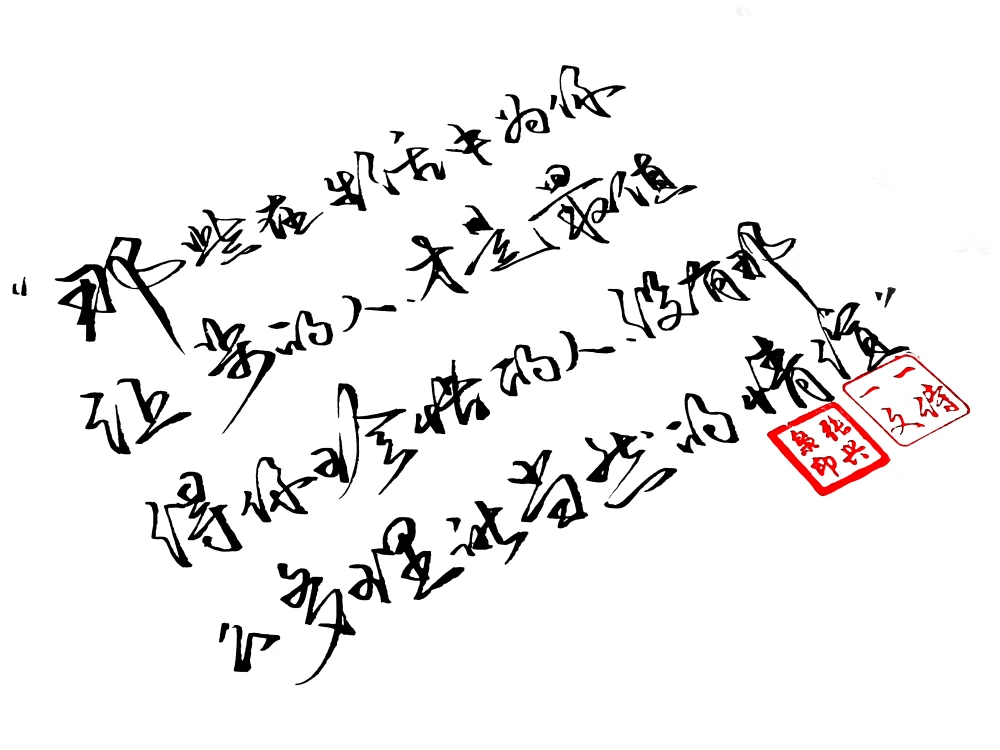 “那些在生活中为你
让步的人.才是最值
得你珍惜的人.没有那
么多理所当然的情谊”
一诗
一文